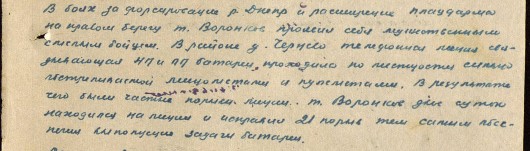 В боях за форсирование р. Днепр и расширение плацдарма
на правом берегу т. Воронков проявил себя мужественным
смелым бойцом. В районе д. телефонная линия свя-
зывающая НП и ОП батареи, проходила по местности сильно
простреливаемой минометами и пулеметами. В результате
чего были частые порывы линии. т. Воронков двое суток
находился на линии и исправил 21 порыв тем самым обес-
печил выполнение задачи батареи.